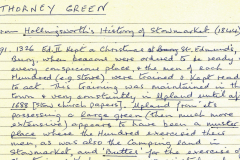 THORNEY GREEN
from Hollingsworth's History of Stowmarket (1844)
91. 1326 Ed. II kept a Christmas at Bury St. Edmund's,
Bury, when beacons were ordered to be ready
using conspiracy, & the men of each
Hundred (e.g. Stow) were trained & kept ready
to act. This training was maintained in the
town, & very constantly in Upland until after
1688 [Stow church papers]. Upland from its
possessing a large green (then much more
extensive) appears to have been a muster
place where the Hundred exercised their
men, as was also the Camping land in
Stowmarket, and 'Buttes' for the exercise of